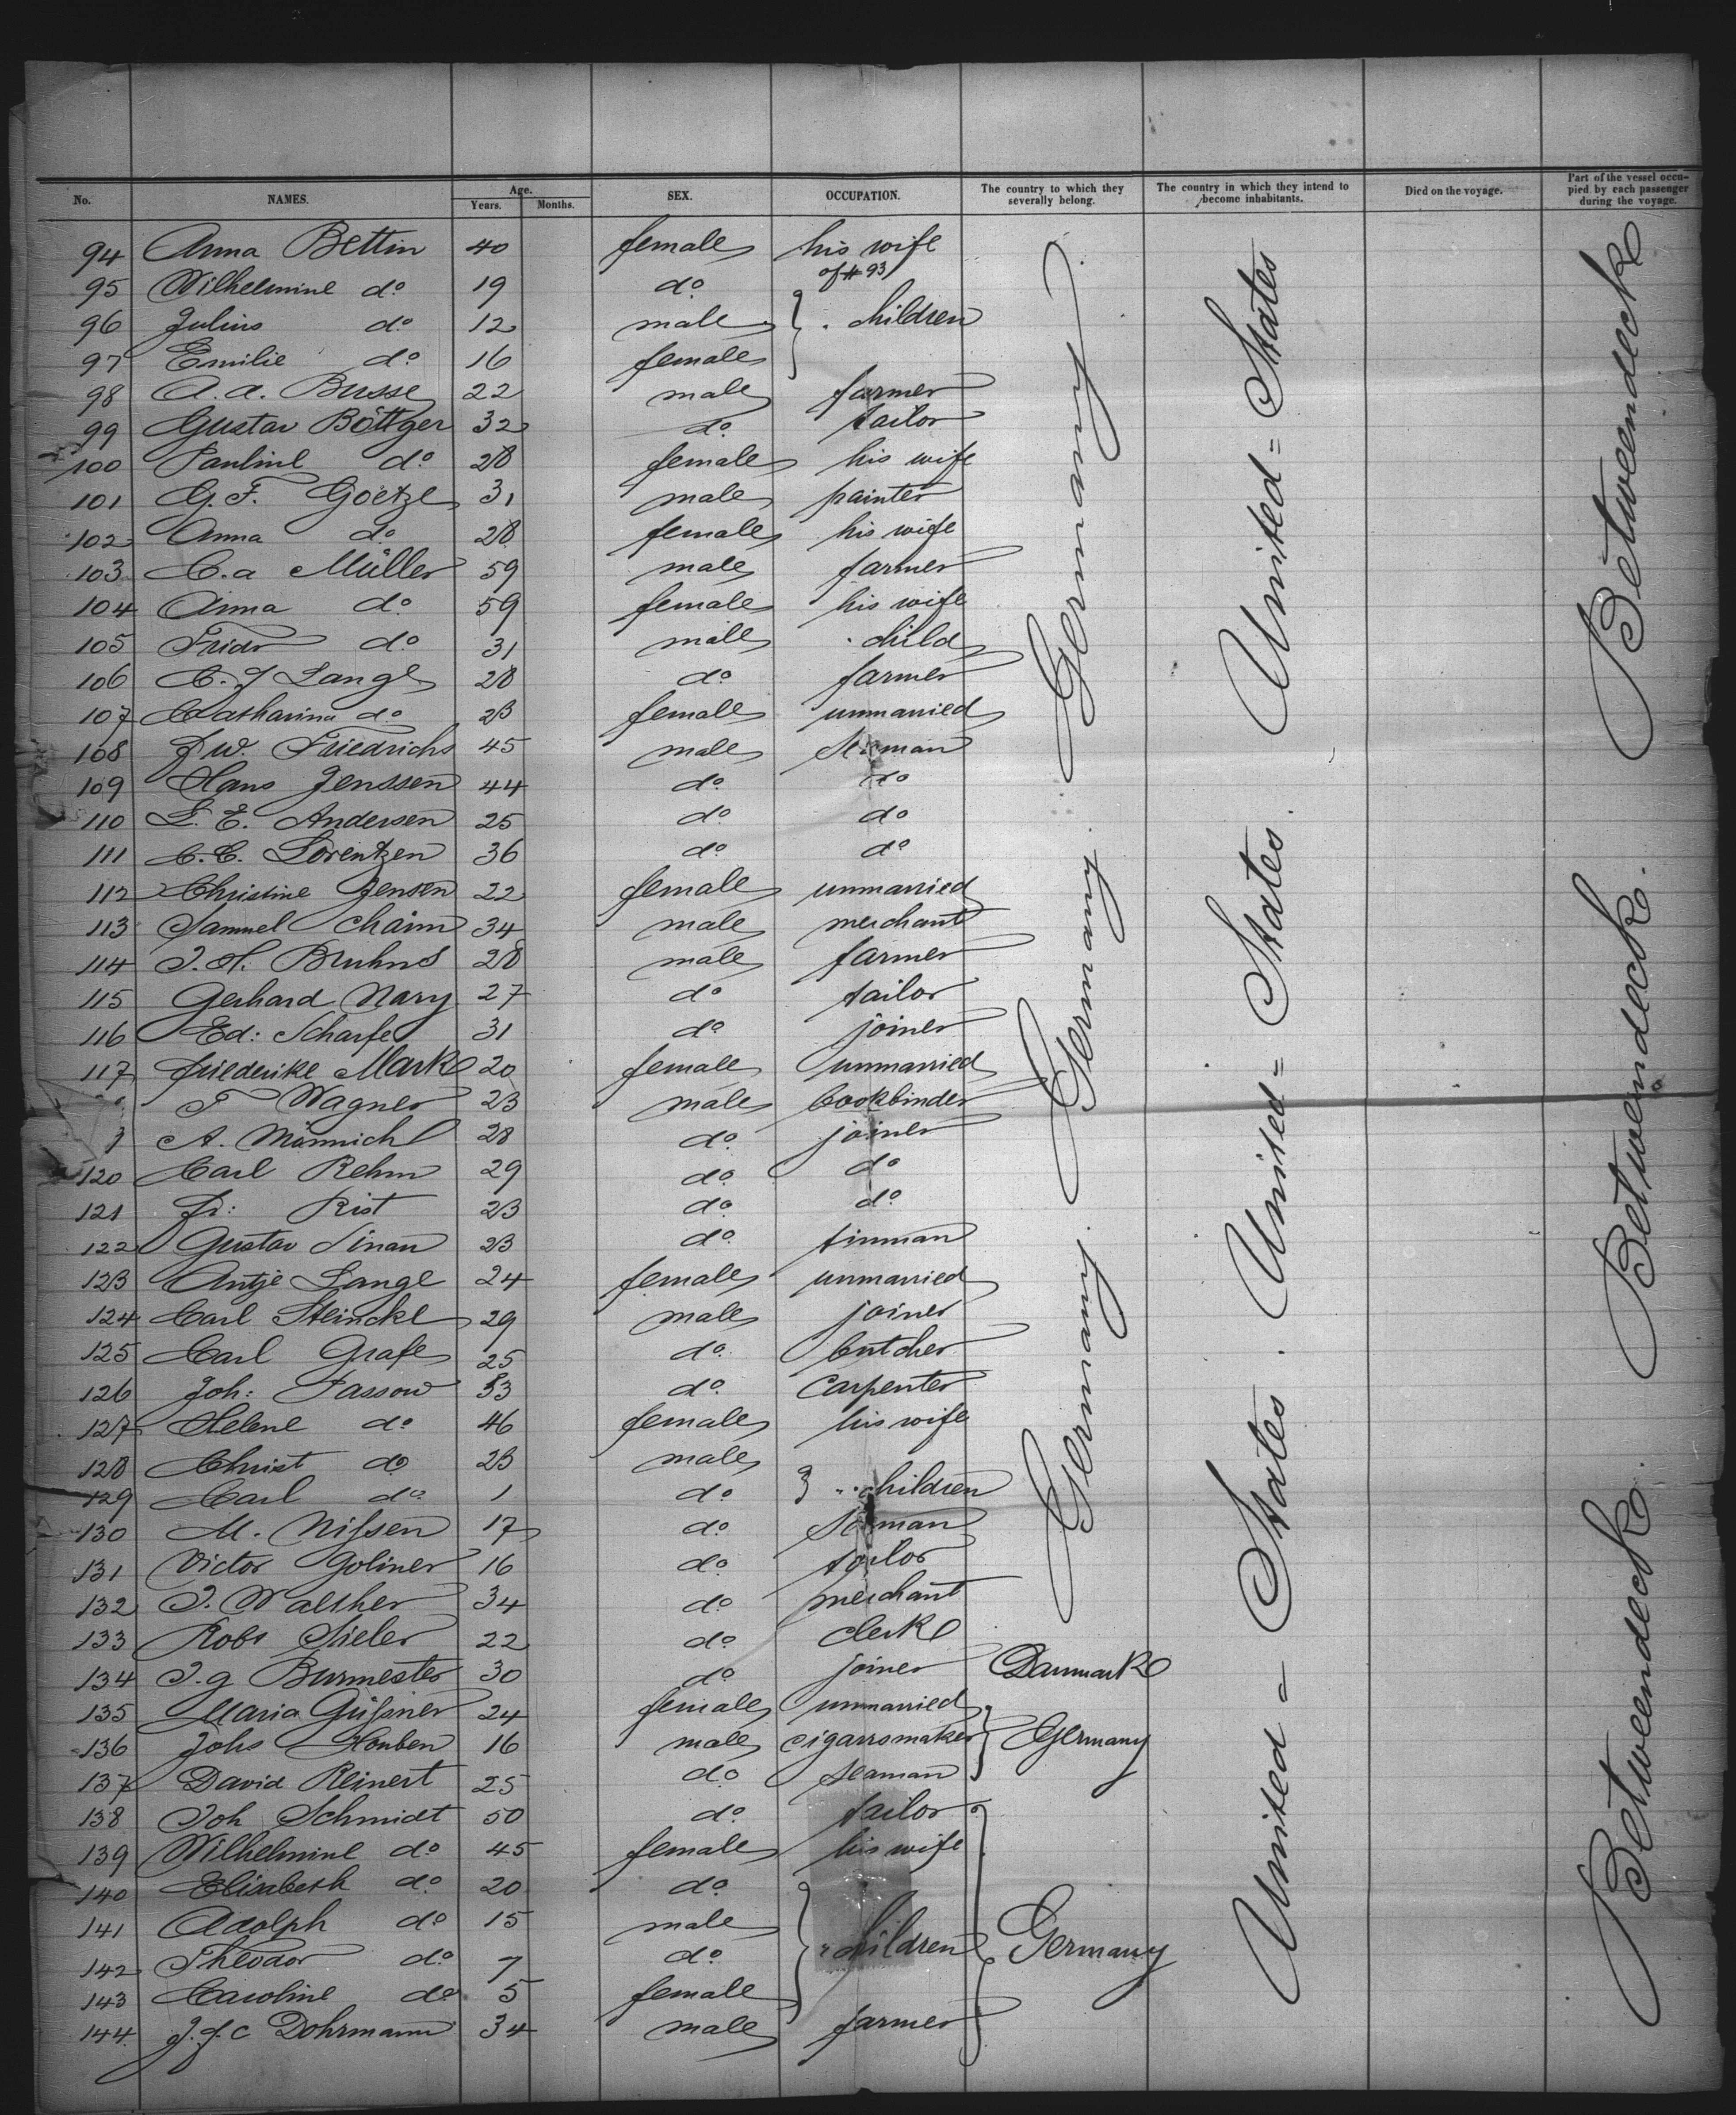 No. NAMES. Age. Years. Months. SEX. OCCUPATION. The country to which they severally belong. The country in which they intend to become inhabitants. Died on the voyage. Part of the vessel occupied by each passenger during the voyage.
94 Anna Bettin 40 female his wife
of # 93
95 Wilhelmine do 19 do
96 Julius do 12 male children
97 Emilie do 16 female
98 A. A. Busse 22 male farmer
99 Gustav Böttger 32 do tailor
100 Pauline do 28 female his wife
101 G. F. Goetze 31 male painter
102 Anna do 28 female his wife
103 C. a Müller 59 male farmer
104 Anna do 59 female his wife
105 Fridr do 31 male child
106 C. J Lange 28 do farmer
107 Catharina do 23 female unmarried
108 J W. Friedrichs 45 male seaman
109 Hans Jenssen 44 do do
110 L. E. Andersen 25 do do
111 C. C. Lorentzen 36 do do
112 Christine Jensen 22 female unmarried
113 Samuel Chaim 34 male merchant
114 J. H. Bruhns 28 male farmer
115 Gerhard Nary 27 do tailor
116 Ed: Scharfe 31 do joiner
117 Friederike Mark 20 female unmarried
F Wagner 23 male bookbinder
A. Männich 28 do joiner
120 Carl Rehm 29 do do
121 Fr: Rist 23 do do
122 Gustav Sinan 23 do tinman
123 Antje Lange 24 female unmarried
124 Carl Steincke 29 male joiner
125 Carl Grafe 25 do butcher
126 Joh: Passow 53 do carpenter
127 Helene do 46 female his wife
128 Christ do 23 male
129 Carl do 1 do children
130 M. Nissen 17 do seaman
131 Victor Goliner 16 do tailor
132 J. Walther 34 do merchant
133 Robt Sieler 22 do clerk
134 J. g Burmester 30 do joiner Danmark
135 Maria Güssner 24 female unmarried
136 Johs Houben 16 male cigarrsmaker Germany
137 David Reinert 25 do seaman
138 Joh Schmidt 50 do tailor
139 Wilhelmine do 45 female his wife
140 Elisabeth do 20 do
141 Adolph do 15 male
142 Theodor do 7 do children Germany
143 Caroline do 5 female
144 J. J. C Dohrmann 34 male farmer
Germany. Germany. Germany.
United - States. United = States. United = States
Betweendeck. Betweendeck. Betweendeck